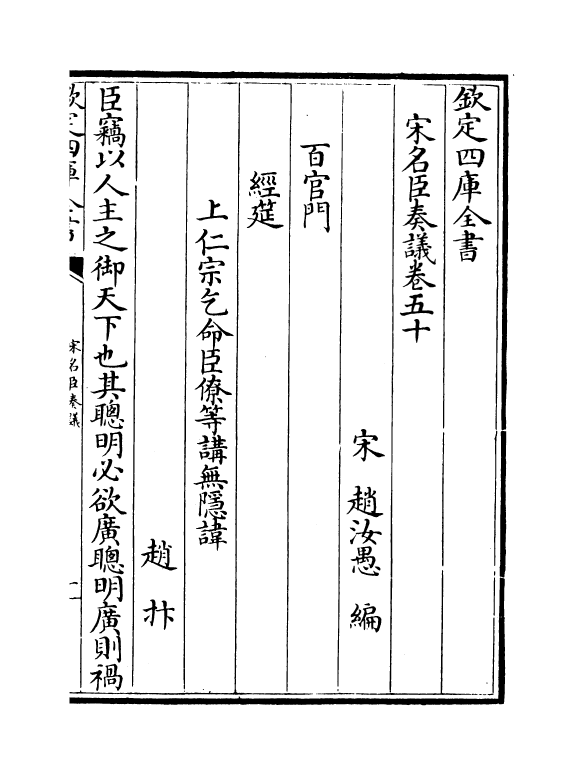 欽定四庫全書
宋名臣奏議卷五十
宋 趙汝愚 編
百官門
經筵
上仁宗乞命臣僚等講無隱諱
趙抃
臣竊以人主之御天下也其聰明必欲廣聰明廣則禍
欽定四庫全書
宋名臣奏議